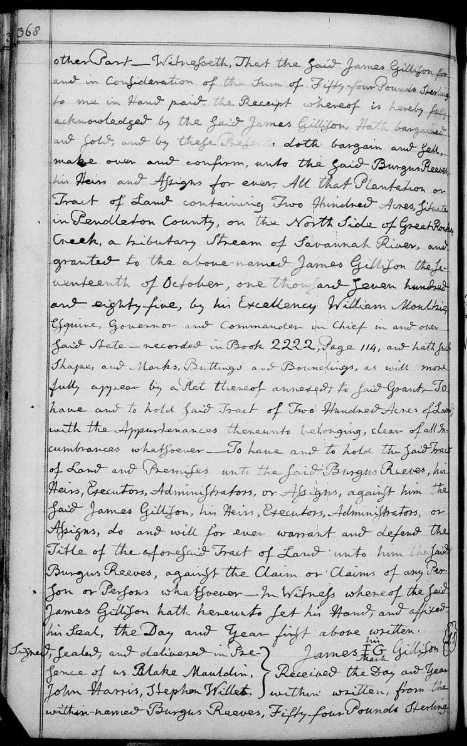 368
other Part — Witnesseth, That the said James Gillison for
and in Consideration of the Sum of Fifty-four Pounds Sterling
to me in Hand paid the Receipt whereof is hereby fully
acknowledged by the said James Gillison Hath bargained
and sold, and by these Presents, doth bargain and sell,
make over and confirm, unto the said Burgus Reeves,
his Heirs and Assigns for ever, All that Plantation or
Tract of Land containing Two Hundred Acres, Situate
in Pendleton County, on the North Side of Great Rocky
Creek, a tributary Stream of Savannah River, and
granted to the above-named James Gillison the se-
venteenth of October, one thousand seven hundred
and eighty-five, by his Excellency William Moultrie,
Esquire, Governor and Commander in Chief in and over
said State — recorded in Book 2222, Page 114, and hath such
Shapes, and Marks, Buttings and Boundings, as will more
fully appear by a Plot thereof annexed to said Grant — To
have and to hold said Tract of Two Hundred Acres of Land
with the Appurtenances thereunto belonging, clear of all In-
cumbrances whatsoever — To have and to hold the said Tract
of Land and Premises unto the said Burgus Reeves, his
Heirs, Executors, Administrators, or Assigns, against him the
said James Gillison, his Heirs, Executors, Administrators, or
Assigns, do and will for ever warrant and defend the
Title of the aforesaid Tract of Land unto him the said
Burgus Reeves, against the Claim or Claims of any Per-
son or Persons whatsoever — In Witness whereof the said
James Gillison hath hereunto set his Hand, and affixed
his Seal, the Day and Year first above written.
Signed, sealed, and delivered in Pre-
sence of us Blake Mauldin,
John Harris, Stephen Willet.
his
James IG Gillison
Mark
Received the Day and Year
within written, from the
within-named Burgus Reeves, Fifty-four Pounds Sterling